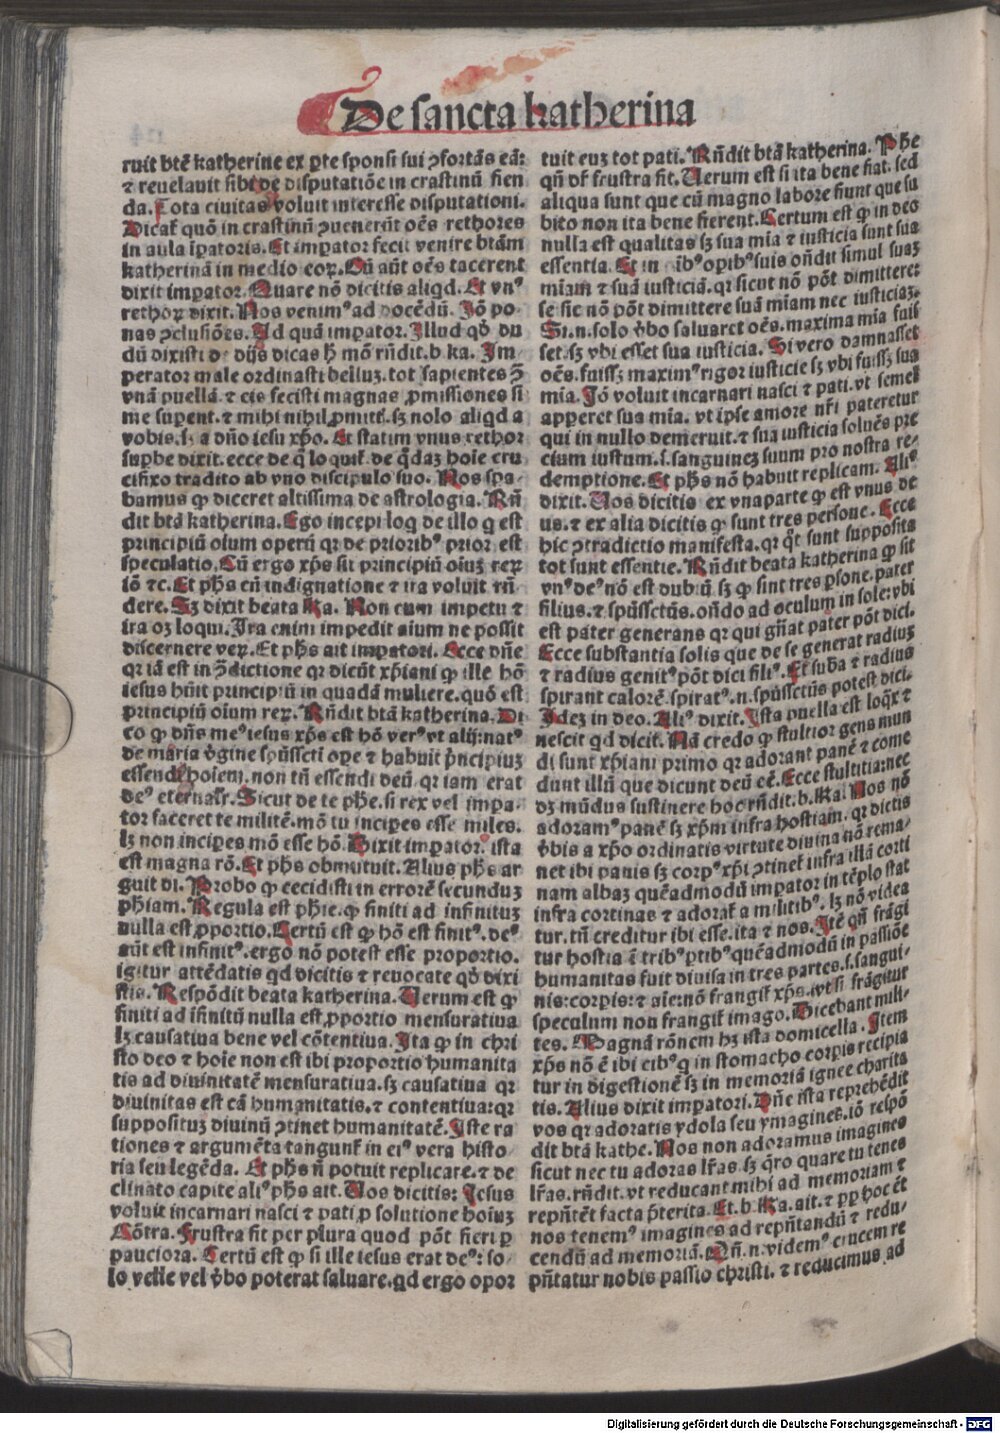 De sancta katherina
ruit btē katherine ex ꝑte sponsi sui ꝯfortās eā:
⁊ reuelauit sibi de disputatiōe in crastinū fien
da. Tota ciuitas voluit interesse disputationi.
Dicat̄ quō in crastinū ꝯuenerūt oēs rethores
in aula īꝑatoris. Et imꝑator fecit venire btām
katherinā in medio eoꝝ. Cū aūt oēs tacerent
dixit imꝑator. Quare nō dicitis aliqd. Et vnꝰ
rethoꝝ dixit. Nos venimꝰ ad docēdū. Iō po-
nas ꝯclusiōes. Ad quā imꝑator. Illud qđ du
dū dixisti de dijs dicas hͦ mō rn̄dit. b ka. Im-
perator male ordinasti belluꝫ. tot sapientes ꝯ̄
vnā puellā. ⁊ eis fecisti magnas ꝓmissiones si
me suꝑent. ⁊ mihi nihil ꝓmittꝭ. sꝫ nolo aliqd a
vobis. sꝫ a dn̄o iesu xp̄o. Et statim vnus rethor
suꝑbe dixit. ecce de q̄ loquit̄. de q̄daꝫ hoīe cru
cifixo tradito ab vno discipulo suo. Nos spa-
bamus ꝙ diceret altissima de astrologia. Rn̄
dit btā katherina. Ego incepi loq de illo q est
principiū oīum operū qꝛ de prioribꝰ prior est
speculatio. Cū ergo xp̄s sit principiū oīuꝫ reꝝ
iō ⁊c. Et ph̄s cū indignatione ⁊ ira voluit rn̄
dere. Sꝫ dixit beata ka. Non cum impetu ⁊
ira oꝫ loqui. Ira enim impedit aīum ne possit
discernere veꝝ. Et ph̄s ait imꝑatori. Ecce dn̄e
qꝛ iā est in ꝯ̄dictione qꝛ dicūt xp̄iani ꝙ ille hō
iesus hūit principiū in quadā muliere. quō est
principiū oīum reꝝ. Rn̄dit btā katherina. Di
co ꝙ dn̄s meꝰ iesus xp̄s est hō verꝰ vt alij: natꝰ
de maria v̄gine sp̄ūssct̄i oꝑe ⁊ habuit p̄ncipiuꝫ
essendi hoīem. non tn̄ essendi deū qꝛ iam erat
deꝰ eternalr̄. Sicut de te ph̄e. si rex vel impa-
tor faceret te militē. mō tu incipes esse miles.
lꝫ non incipes mō esse hō. Dixit imꝑator. ista
est magna rō. Et ph̄s obmutuit. Alius ph̄s ar
guit di. Probo ꝙ cecidisti in errorē secunduꝫ
ph̄iam. Regula est ph̄ie. ꝙ finiti ad infinituꝫ
nulla est ꝓportio. Certū est ꝙ hō est finitꝰ. deꝰ
aūt est infinitꝰ. ergo nō potest esse proportio.
igitur attēdatis qd dicitis ⁊ reuocate qđ dixi
stis. Respōdit beata katherina. Verum est ꝙ
finiti ad īfinitū nulla est ꝓportio mensuratiua
lꝫ causatiua bene vel cōtentiua. Ita ꝙ in chri
sto deo ⁊ hoīe non est ibi proportio humanita
tis ad diuinitatē mensuratiua. sꝫ causatiua qꝛ
diuinitas est cā humanitatis. ⁊ contentiua: qꝛ
suppositūꝫ diuinū ꝯtinet humanitatē. Iste ra
tiones ⁊ argumēta tangunt̄ in eiꝰ vera histo-
ria seu legēda. Et ph̄s n̄ potuit replicare. ⁊ de
clinato capite aliꝰ ph̄s ait. Uos dicitis: Jesus
voluit incarnari nasci ⁊ pati ꝓ solutione hoīuꝫ
Cōtra. Frustra fit per plura quod pōt fieri ꝑ
pauciora. Certū est ꝙ si ille iesus erat deꝰ: so-
lo velle vel v̄bo poterat saluare. qd ergo opor
tuit euꝫ tot pati. Rn̄dit btā katherina. Phe
qn̄ dr̄ frustra fit. Verum est si ita bene fiat. sed
aliqua sunt que cū magno labore fiunt que su
bito non ita bene fierent. Certum est ꝙ in deo
nulla est qualitas sꝫ sua mīa ⁊ iusticia sunt sua
essentia. Et in oībꝰ oꝑibꝰ suis on̄dit simul suaꝫ
mīam ⁊ suā iusticiā. qꝛ sicut nō pōt dimittere:
se sic nō pōt dimittere suā mīam nec iusticiaꝫ.
Si. n. solo v̄bo saluaret oēs. maxima mīa fuis
set. sꝫ vbi esset sua iusticia. Si vero damnasset
oēs. fuissꝫ maximꝰ rigor iusticie sꝫ vbi fuissꝫ sua
mīa. Iō voluit incarnari nasci ⁊ pati. vt semel
apperet sua mīa. vt ipse amore nr̄i pateretur
qui in nullo demeruit. ⁊ sua iusticia soluēs pre
cium iustum. s. sanguineꝫ suum pro nostra re-
demptione. Et ph̄s nō habuit replicam. Aliꝰ
dixit. Uos dicitis ex vna parte ꝙ est vnus de
us. ⁊ ex alia dicitis ꝙ sunt tres persone. Ecce
hic ꝯtradictio manifesta. qꝛ q̄t sunt supposita
tot sunt essentie. Rn̄dit beata katherina ꝙ sit
vnꝰ deꝰ nō est dubiū sꝫ ꝙ sint tres ꝑsone. pater
filius. ⁊ sp̄ūssct̄us. on̄do ad oculum in sole: vbi
est pater generans qꝛ qui gn̄at pater pōt dici.
Ecce substantia solis que de se generat radiuꝫ
⁊ radius genitꝰ pōt dici filiꝰ. Et suba ⁊ radius
spirant calorē. spiratꝰ. n. sp̄ūssct̄us potest dici.
Ideꝫ in deo. Aliꝰ dixit. Ista puella est loqx̄ ⁊
nescit qd dicit. Nā credo ꝙ stultior gens mun
di sunt xp̄iani primo qꝛ adorant panē ⁊ come
dunt illū que dicunt deū eē. Ecce stultitia: nec
dꝫ mūdus sustinere hoc rn̄dit. b. Ka. Nos nō
adoramꝰ panē sꝫ xp̄m infra hostiam. qꝛ dictis
v̄bis a xp̄o ordinatis virtute diuina nō rema-
net ibi panis sꝫ corpꝰ xp̄i ꝯtinet infra illā corti
nam albaꝫ quēadmodū imꝑator in tēplo stat
infra cortinas ⁊ adorat̄ a militibꝰ. lꝫ nō videa
tur. tn̄ creditur ibi esse. ita ⁊ nos. Itē qn̄ frāgi
tur hostia ē tribꝰ ꝑtibꝰ quēadmodū in passiōe
humanitas fuit diuisa in tres partes. s. sangui-
nis: corꝑis: ⁊ aīe: nō frangit̄ xp̄s. vt si frāgitur
speculum non frangit̄ imago. Dicebant mili-
tes. Magnā rōnem hꝫ ista domicella. Item
xp̄s nō ē ibi cibꝰ q in stomacho corꝑis recipia
tur in digestionē sꝫ in memoriā ignee charita
tis. Alius dixit imꝑatori. Dn̄e ista reprehēdit
vos qꝛ adoratis ydola seu ymagines. iō respō
dit btā kathe. Nos non adoramus imagines
sicut nec tu adoras lr̄as. sꝫ q̄ro quare tu tenes
lr̄as. rn̄dit. vt reducant mihi ad memoriam ⁊
repn̄tēt facta p̄terita. Et. b. Ka. ait. ⁊ ꝓꝑ hoc ēt
nos tenemꝰ imagines ad repn̄tandū ⁊ redu-
cendū ad memoriā. Qn̄. n. videmꝰ crucem re
pn̄tatur nobis passio christi. ⁊ reducimus ad
Digitalisierung gefördert durch die Deutsche Forschungsgemeinschaft - DFG